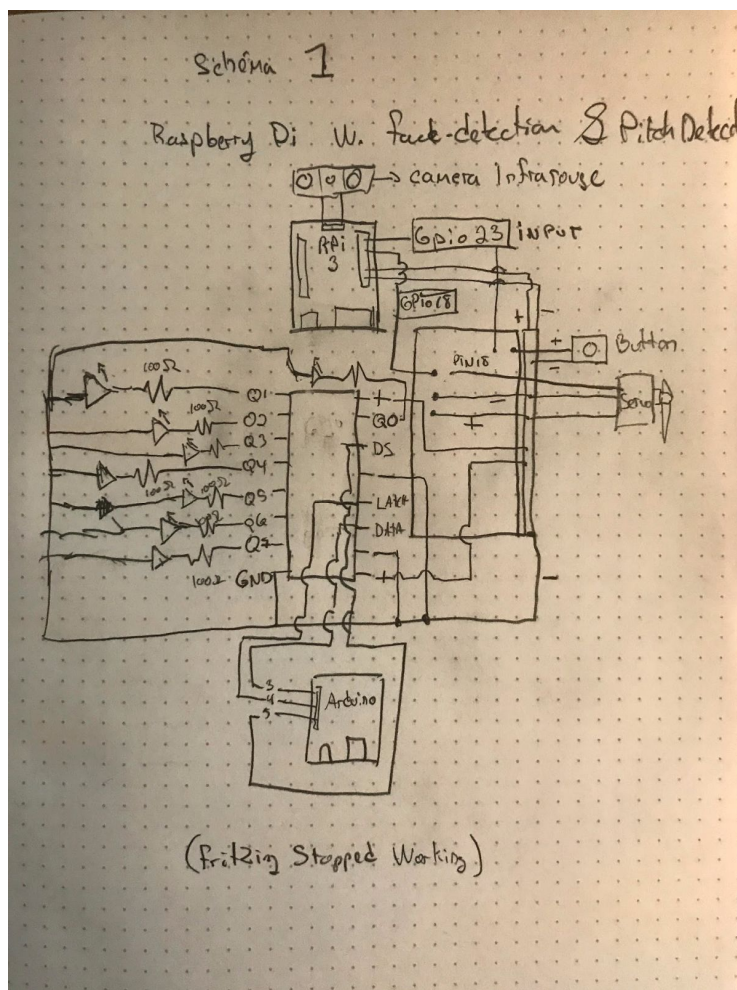 Schéma 1
Raspberry Pi W. face-detection & Pitch Detec
camera Infrarouge
RPi
3
Gpio 23 INPUT
GPio 18
+ -
+
Button
-
PiN 18
Servo
-
+
100Ω
Q1
+
100Ω
Q2
Q0
Q3
DS
Q4
100Ω
100Ω
Q5
LATCH
100Ω
Q6
DATA
Q7
100Ω
GND
+
-
3
4
5
Arduino
(Fritzing Stopped Working)